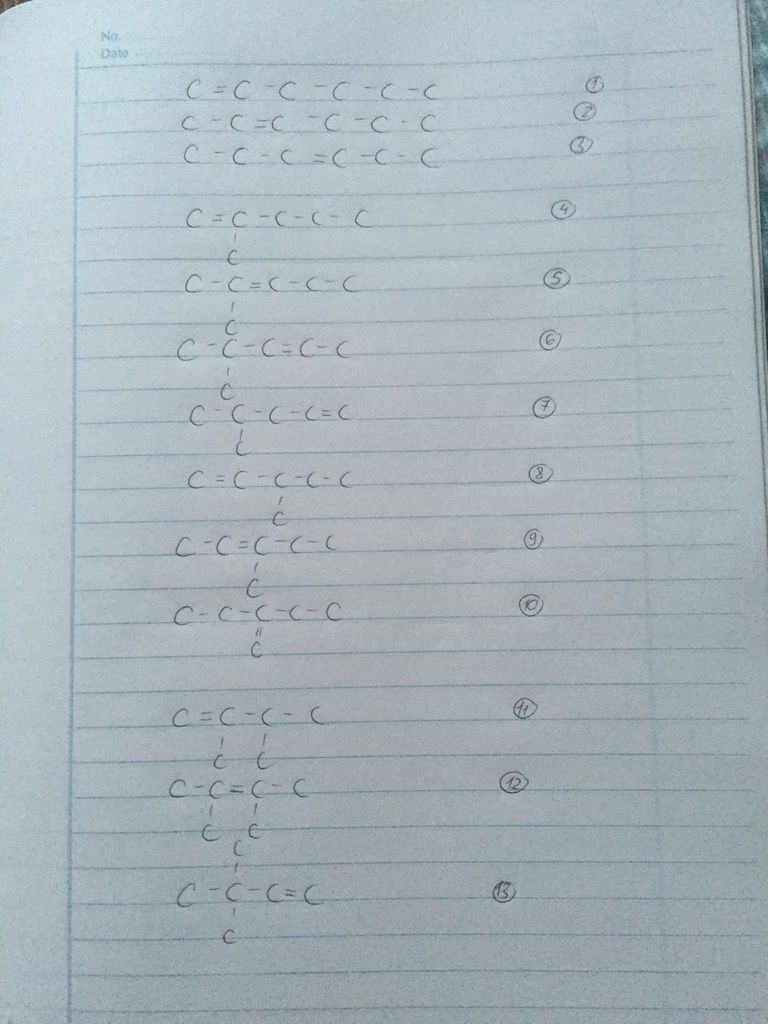 No.
Date
C = C - C - C - C - C ①
C - C = C - C - C - C ②
C - C - C = C - C - C ③
C = C - C - C - C ④
|
C
C - C = C - C - C ⑤
|
C
C - C - C = C - C ⑥
|
C
C - C - C - C = C ⑦
|
C
C = C - C - C - C ⑧
|
C
C - C = C - C - C ⑨
|
C
C - C - C - C - C ⑩
||
C
C = C - C - C ⑪
| |
C C
C - C = C - C ⑫
| |
C C
C
|
C - C - C = C ⑬
|
C